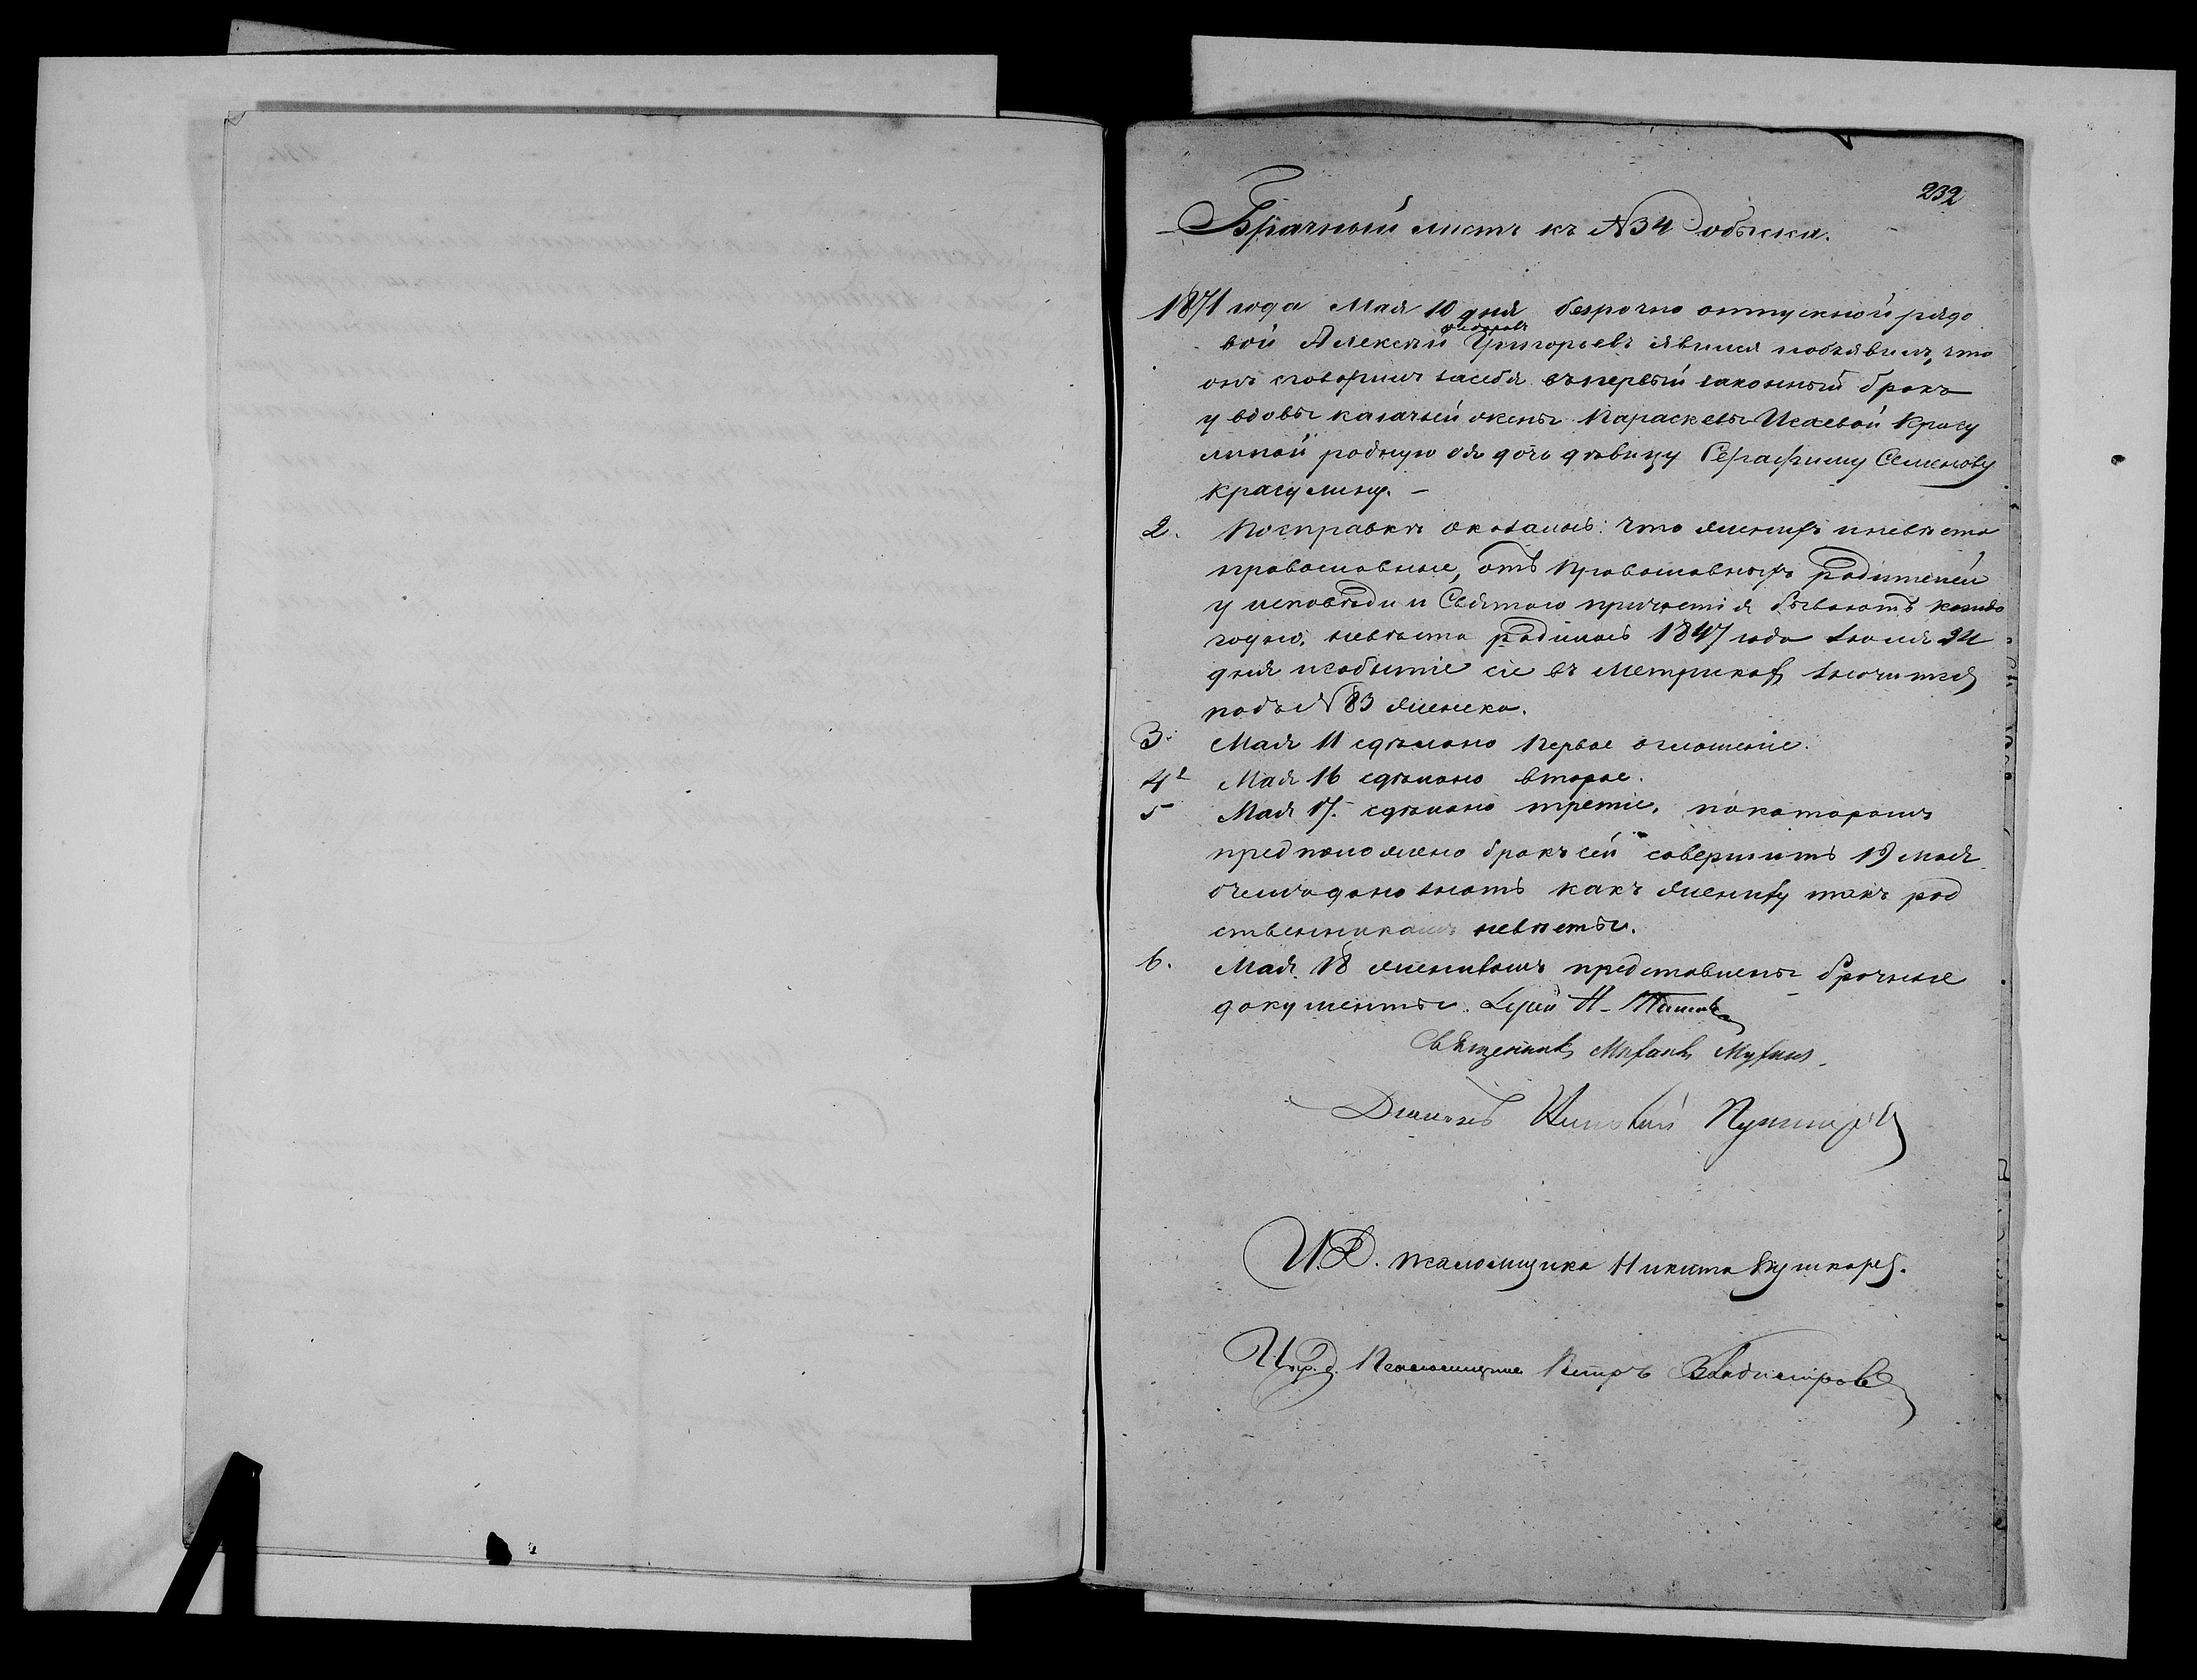 232
Брачный листъ къ №34 обыска.
1871 года Мая 10 дня безрочно отпускной рядо
Федоровъ
вой Алексѣй Григорьевъ явился иобъявилъ, что
онъ сговорилъ засебя въпервый законный бракъ
у вдовы казачьей жены Параскевы Исаевой Красу
линой родную ея дочь дѣвицу Серафиму Семенову
Красулину. –
2. Посправкѣ оказалось: что женихъ иневѣста
православные, отъ православныхъ родителей
у исповѣди и Святаго причастія бываютъ каждо
годно, невѣста родилась 1847 года Іюля 24
дня исобытіе сіе въ метрикахъ значится
подъ №83 женска.
3. Мая 11 сдѣлано первое оглашеніе.
4 Мая 16 сдѣлано второе.
5 Мая 17. сдѣлано третіе, покоторомъ
предположено бракъ сей совершить 19 мая
очемъ дано знать какъ жениху такъ род
ственникамъ невѣсты.
6. Мая 18 женихомъ представлены брачные
документы. Іерей Н.
Священникъ Михаилъ Мухинъ
Діаконъ Николай Пушкаревъ
И.Д. псаломщика Никита Пушкаревъ.
Испр. д. Псаломщика Петръ